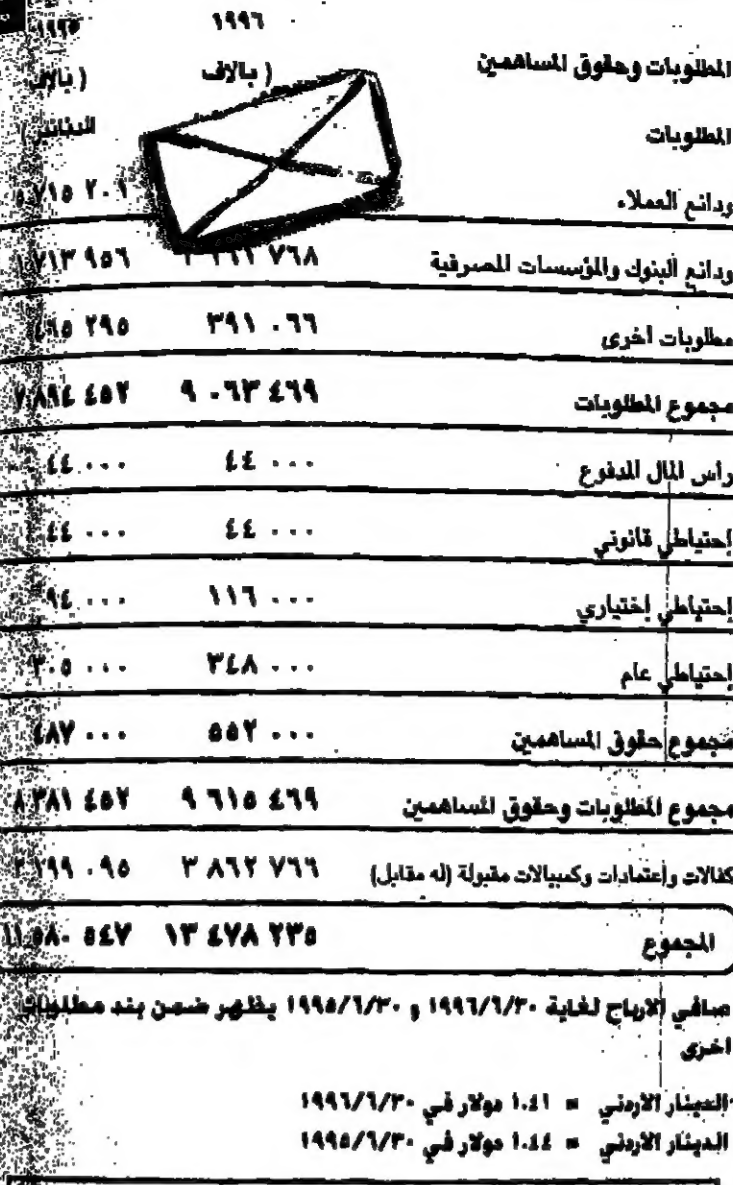 ١٩٩٦ ١٩٩٥
المطلوبات وحقوق المساهمين ( بالاف ( بالاف
المطلوبات الدنانير )
ودائع العملاء ٢٠١
ودائع البنوك والمؤسسات المصرفية ٧٦٨ ٧١٣ ٩٥٦
مطلوبات أخرى ٣٩١ ٠٦٦ ٤٦٥ ٢٩٥
مجموع المطلوبات ٩ ٠٦٣ ٤٦٩ ٧ ٨٩٤ ٤٥٢
رأس المال المدفوع ٤٤ ٠٠٠ ٤٤ ٠٠٠
إحتياطي قانوني ٤٤ ٠٠٠ ٤٤ ٠٠٠
إحتياطي إختياري ١١٦ ٠٠٠ ٩٤ ٠٠٠
إحتياطي عام ٣٤٨ ٠٠٠ ٣٠٥ ٠٠٠
مجموع حقوق المساهمين ٥٥٢ ٠٠٠ ٤٨٧ ٠٠٠
مجموع المطلوبات وحقوق المساهمين ٩ ٦١٥ ٤٦٩ ٨ ٣٨١ ٤٥٢
كفالات وإعتمادات وكمبيالات مقبولة (له مقابل) ٣ ٨٦٢ ٧٦٦ ٣ ١٩٩ ٠٩٥
المجموع ١٣ ٤٧٨ ٢٣٥ ١١ ٥٨٠ ٥٤٧
صافي الارباح لغاية ١٩٩٦/٦/٣٠ و ١٩٩٥/٦/٣٠ يظهر ضمن بند مطلوبات
اخرى
الدينار الاردني = ١.٤١ دولار في ١٩٩٦/٦/٣٠
الدينار الاردني = ١.٤٤ دولار في ١٩٩٥/٦/٣٠